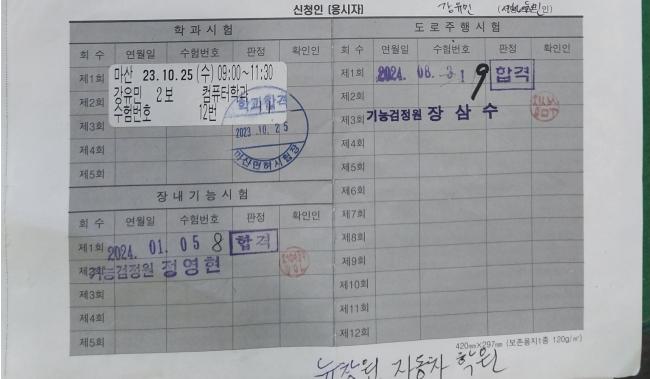 신청인 (응시자)
강유민
학 과 시 험
회 수 연월일 수험번호 판정 확인인
제1회
마산 23.10.25(수) 09:00~11:30
강유민 2보 컴퓨터학과
수험번호 12번
제2회
제3회
제4회
제5회
학과합격
2023.10.25
마산면허시험장
장 내 기 능 시 험
회 수 연월일 수험번호 판정 확인인
제1회 2024. 01. 05 8 합격
기능검정원 정영현
제3회
제4회
제5회
도 로 주 행 시 험
회 수 연월일 수험번호 판정 확인인
제1회 2024. 08. 31 9 합격
제2회
제3회 기능검정원 장 삼 수
제4회
제5회
제6회
제7회
제8회
제9회
제10회
제11회
제12회
420㎜×297㎜ (보존용지1종 120g/㎡)
뉴창원 자동차 학원